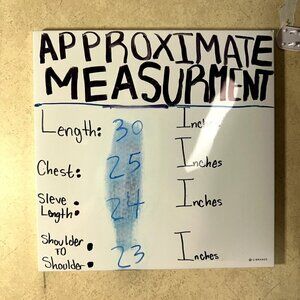 APPROXIMATE
MEASURMENT
Length: 30 Inches
Chest: 25 Inches
Sleve
Length: 24 Inches
Shoulder
TO
Shoulder: 23 Inches